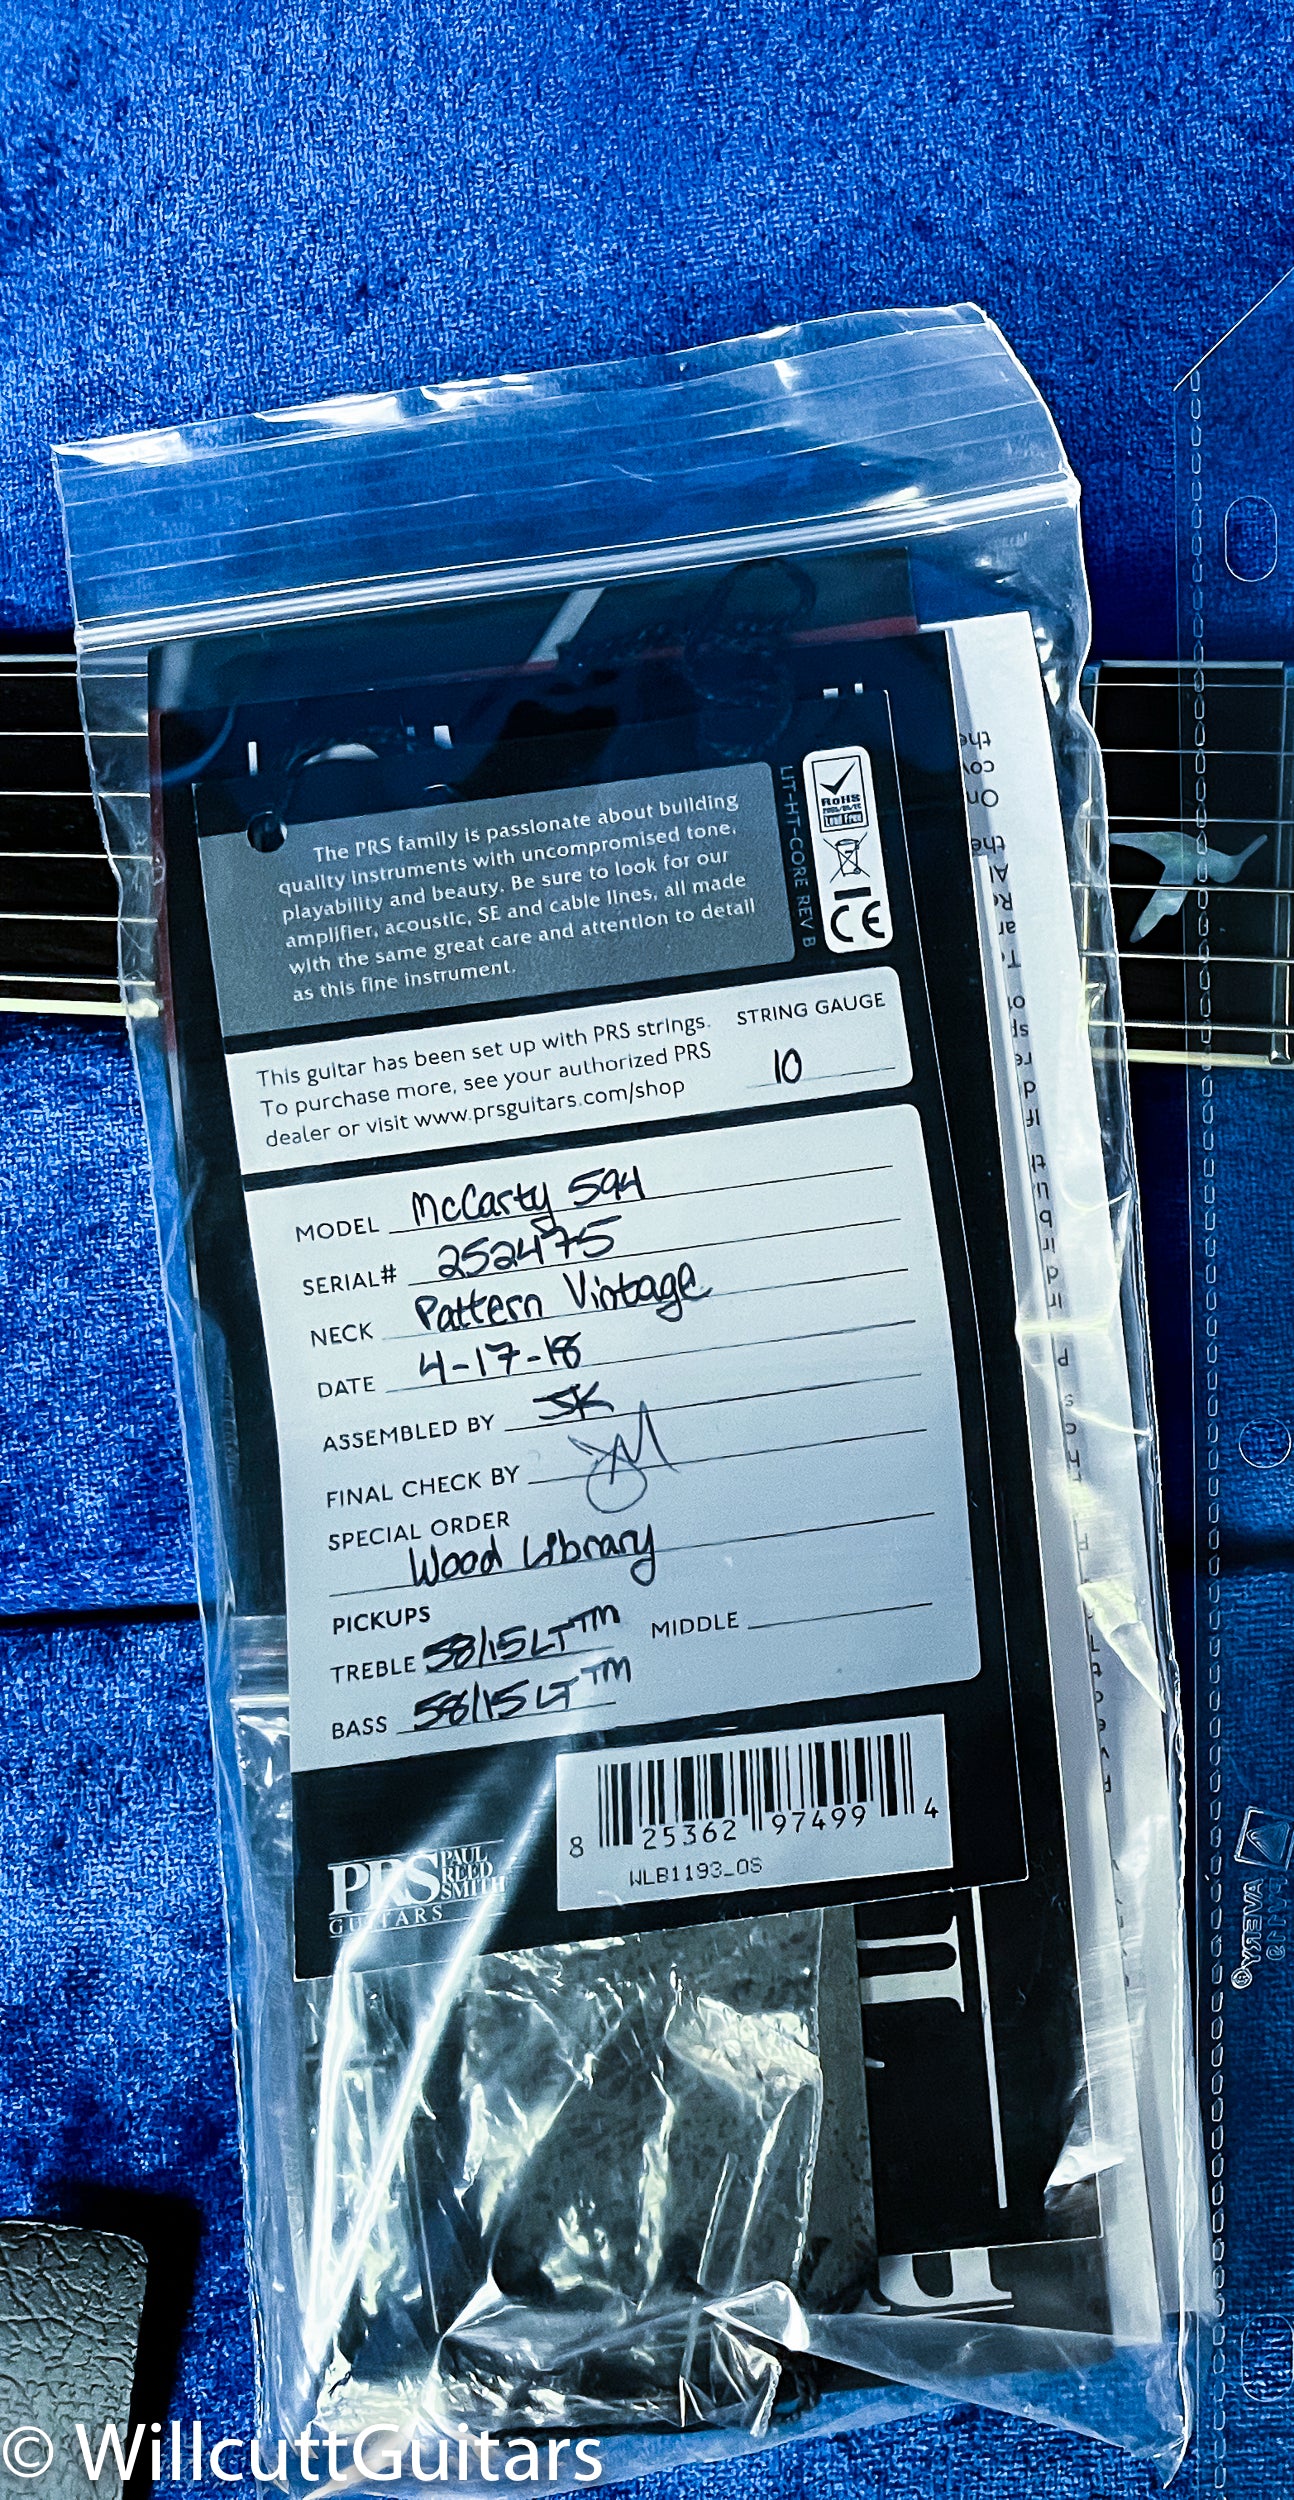 The PRS family is passionate about building
quality instruments with uncompromised tone,
playability and beauty. Be sure to look for our
amplifier, acoustic, SE and cable lines, all made
with the same great care and attention to detail
as this fine instrument.
LIT-HT-CORE REV B
RoHS
Lead Free
CE
This guitar has been set up with PRS strings.
To purchase more, see your authorized PRS
dealer or visit www.prsguitars.com/shop
STRING GAUGE
10
MODEL McCarty 594
SERIAL# 252475
NECK Pattern Vintage
DATE 4-17-18
ASSEMBLED BY JK
FINAL CHECK BY
SPECIAL ORDER
Wood Library
PICKUPS
TREBLE 58/15LT™ MIDDLE
BASS 58/15LT™
8 25362 97499 4
WLB1193_OS
PRS PAUL REED SMITH
GUITARS
AVERY®
© WillcuttGuitars